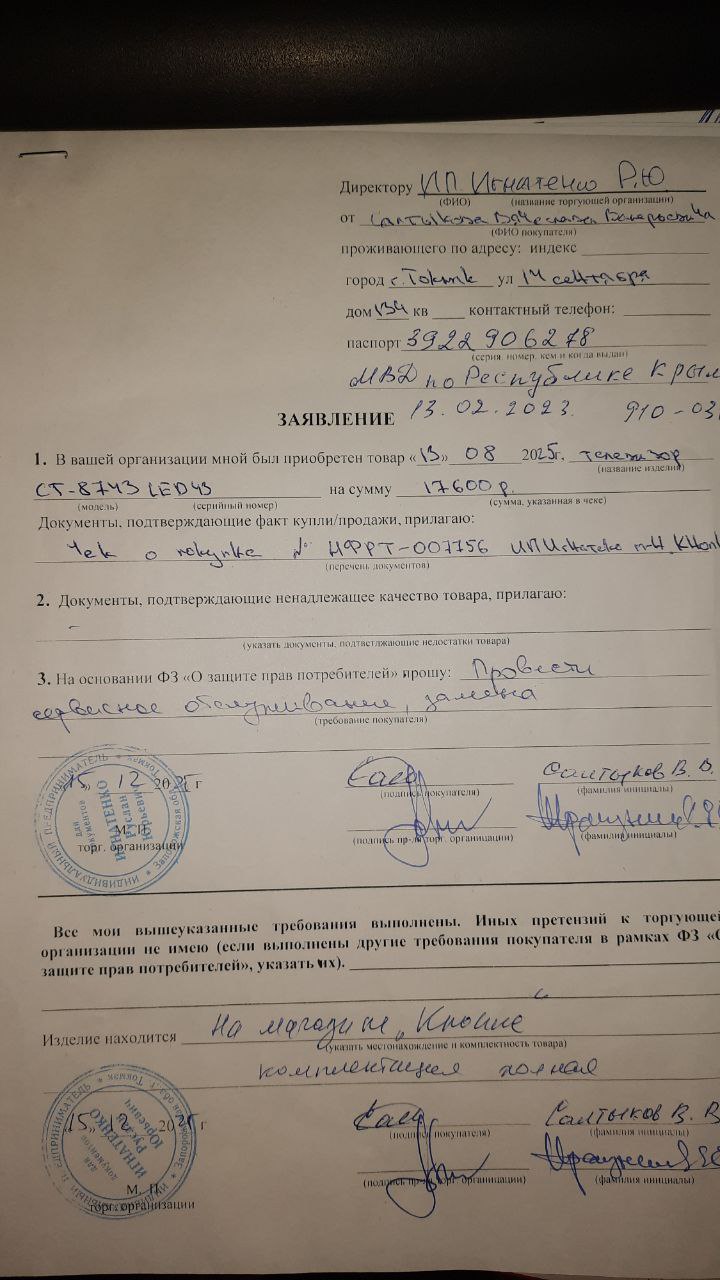 Директору ИП Игнатенко Р.Ю
(ФИО) (название торгующей организации)
от Салтыкова Вячеслава Валерьевича
(ФИО покупателя)
проживающего по адресу: индекс
город г. Токмак ул 14 сентября
дом 134 кв контактный телефон:
паспорт 3922 906278
(серия, номер, кем и когда выдан)
МВД по Республике Крым
ЗАЯВЛЕНИЕ 13.02.2023. 910-03
1. В вашей организации мной был приобретен товар «13» 08 2025г, телевизор
(название изделия)
СТ-8743 LED43 на сумму 17600 р.
(модель) (серийный номер) (сумма, указанная в чеке)
Документы, подтверждающие факт купли/продажи, прилагаю:
Чек о покупке № НФРТ-007756 ИП Игнатенко м-н
(перечень документов)
2. Документы, подтверждающие ненадлежащее качество товара, прилагаю:
-
(указать документы, подтветлжающие недостатки товара)
3. На основании ФЗ «О защите прав потребителей» прошу: Провести
сервисное обслуживание, замена
(требование покупателя)
«15» 12 2025 г Салтыков В. В.
(подпись покупателя) (фамилия инициалы)
М. П.
торг. организации (подпись пр-ля торг. организации) (фамилия инициалы)
ИНДИВИДУАЛЬНЫЙ ПРЕДПРИНИМАТЕЛЬ * Запорожская обл. г. Токмак *
для документов
ИГНАТЕНКО
Руслан
Юрьевич
Все мои вышеуказанные требования выполнены. Иных претензий к торгующей
организации не имею (если выполнены другие требования покупателя в рамках ФЗ «О
защите прав потребителей», указать их).
Изделие находится На магазине „Кнопке"
(указать местонахождение и комплектность товара)
комплектация полная
«15» 12 2025 г Салтыков В. В
(подпись покупателя) (фамилия инициалы)
М. П.
торг. организации (подпись пр-ля торг. организации) (фамилия инициалы)
ИНДИВИДУАЛЬНЫЙ ПРЕДПРИНИМАТЕЛЬ * Запорожская обл. г. Токмак *
для документов
ИГНАТЕНКО
Руслан
Юрьевич